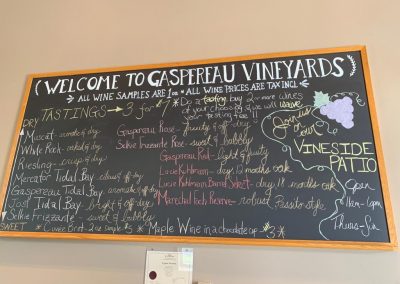 WELCOME TO GASPEREAU VINEYARDS
ALL WINE SAMPLES ARE 1oz * ALL WINE PRICES ARE TAX INCL.
TASTINGS → 3 for $7 * Do a tasting, buy 2 or more wines
of your choosing & we will waive
your tasting fee!!
DRY
Muscat - aromatic & dry
White Rock -
Riesling - crisp & dry
Mercator Tidal Bay -
Gaspereau Tidal Bay - aromatic & off dry
Jost Tidal Bay - bright & off dry
Selkie Frizzante - sweet & bubbly
SWEET
Gaspereau Rosé - fruity & off dry
Selkie Frizzante Rosé - sweet & bubbly
Gaspereau Red - light & fruity
Lucie Kuhlmann - dry, 12 months oak
Lucie Kuhlmann Barrel Select - dry, 18 months oak
Marechal Foch Reserve - robust Passito style
* Cuvée Brut - 2oz sample $5 * Maple Wine in a chocolate cup $3 *
Join us
on our
VINESIDE
PATIO
Open
11am - 6pm
Thurs - Sun